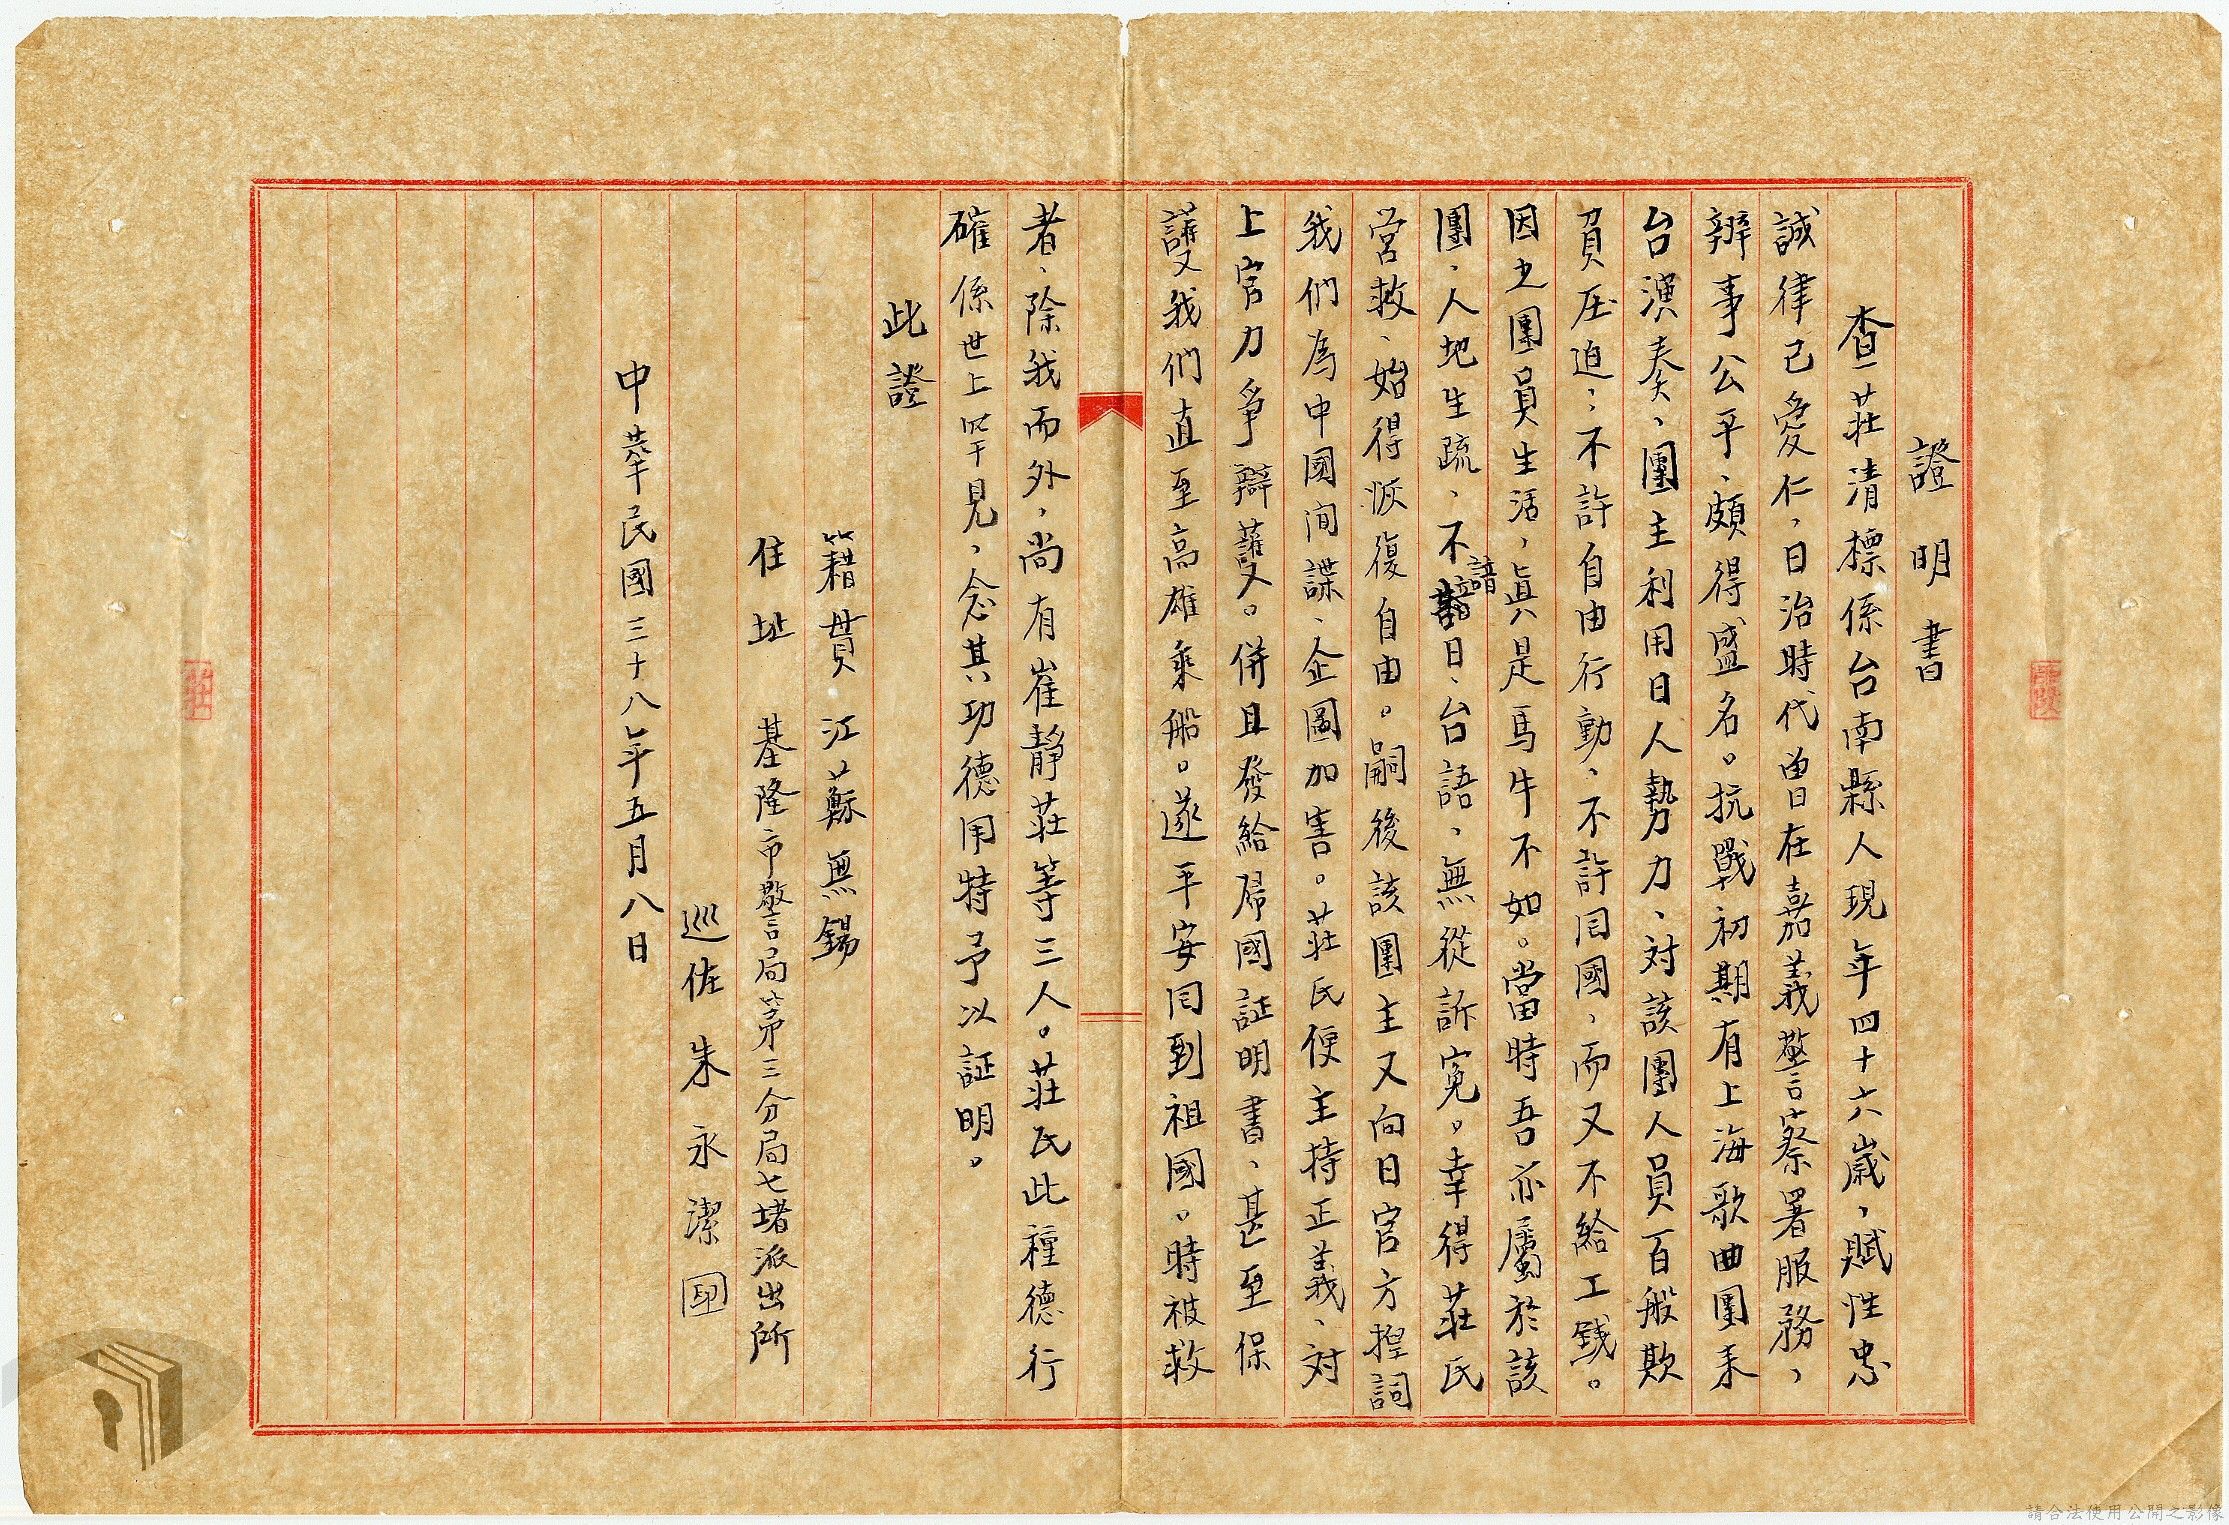 證明書
查莊清標係台南縣人現年四十六歲，賦性忠
誠律己愛仁，日治時代曾在嘉義警察署服務，
辦事公平、頗得盛名。抗戰初期有上海歌曲團來
台演奏、團主利用日人勢力、対該團人員百般欺
負压迫；不許自由行動、不許囘國，而又不給工錢。
因之團員生活，真是馬牛不如。當時吾亦屬於該
團、人地生疏、不諳日、台語、無從訴寃。幸得莊氏
營救、始得恢復自由。嗣後該團主又向日官方捏詞
我們為中國间諜、企圖加害。莊氏便主持正義、対
上官力爭辯護。併且發給歸國証明書、甚至保
護我們直至高雄乘船。遂平安囘到祖國。時被救
者、除我而外，尚有崔靜莊等三人。莊氏此種德行
確係世上罕見，念其功德用特予以証明。
此證
籍貫 江蘇無錫
住址 基隆市警局第三分局七堵派出所
巡佐 朱永潔 印
中華民國三十八年五月八日
請合法使用公開之影像